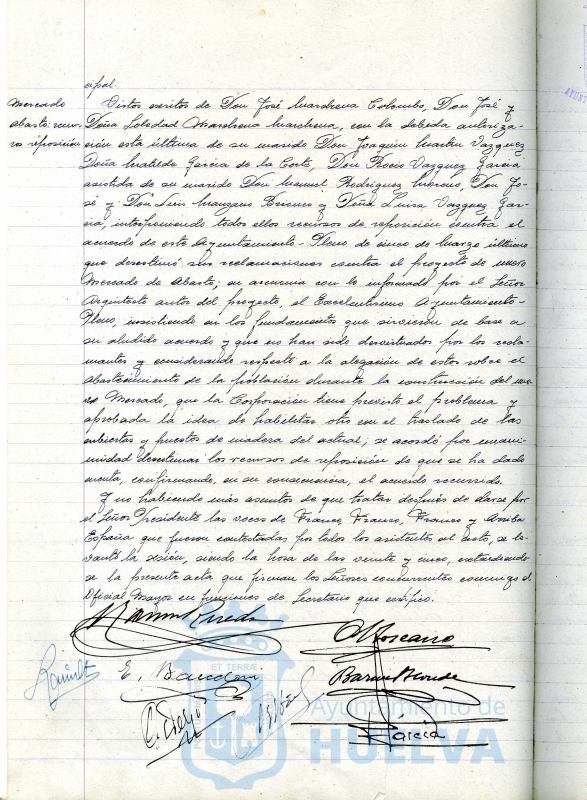 cipal.
Mercado
Abasto: nue-
vo reposición
Vistos escritos de Don José Marchena Colombo, Don José y
Doña Soledad Marchena Marchena, con la debida autoriza-
ción esta última de su marido Don Joaquín Martín Vazquez
Doña Matilde García de la Corte, Don Rocío Vazquez García
asistida de su marido Don Manuel Rodríguez Moreno, Don Jo-
sé y Don Luis Mauzano Briones y Doña Luisa Vazquez Gar-
cía, interponiendo todos ellos recursos de reposición contra el
acuerdo de este Ayuntamiento-Pleno de cinco de Marzo último
que desestimó sus reclamaciones contra el proyecto de nuevo
Mercado de Abasto; en armonía con lo informado por el Señor
Arquitecto autor del proyecto, el Excelentísimo Ayuntamiento-
Pleno, insistiendo en los fundamentos que sirvieron de base a
su aludido acuerdo y que no han sido desvirtuados por los recla-
mantes y considerando respecto a la alegación de estos sobre el
abastecimiento de la población durante la construcción del nue-
vo Mercado, que la Corporación tiene previsto el problema y
aprobada la idea de habilitar otro con el traslado de las
cubiertas y puestos de madera del actual; se acordó por unani-
midad desestimar los recursos de reposición de que se ha dado
cuenta, confirmando, en su consecuencia, el acuerdo recurrido.
Y no habiendo más asuntos de que tratar después de darse por
el Señor Presidente las voces de Franco, Franco, Franco y Arriba
España que fueron contestadas por todos los asistentes al acto, se le-
vantó la sesión, siendo la hora de las veinte y cinco, extendiendo
se la presente acta que firman los Señores concurrentes conmigo el
Oficial Mayor en funciones de Secretario que certifico.
E.
García
ET TERRÆ
Ayuntamiento de
HUELVA